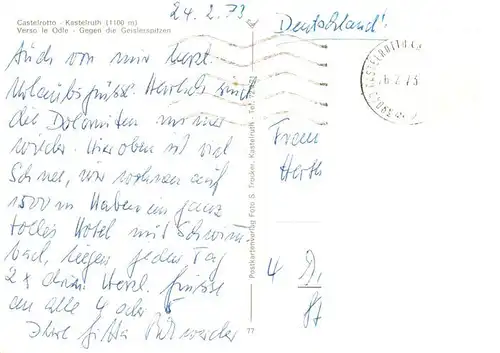 Castelrotto - Kastelruth (1100 m)
Verso le Odle - Gegen die Geislerspitzen
24.2.73
Deutschland!
Auch von mir herzl.
Urlaubsgrüße. Herrlich sind
die Dolomiten immer
wieder. Hier oben ist viel
Schnee, wir wohnen auf
1500 m Haben ein ganz
tolles Hotel mit Schwimm-
bad, liegen jeden Tag
2 x drin. Herzl. Grüsse
an alle 4 oder 5
Ihre Gitta
Postkartenverlag Foto G. Trocker, Kastelruth - Tel.
77
Frau
Herth
4